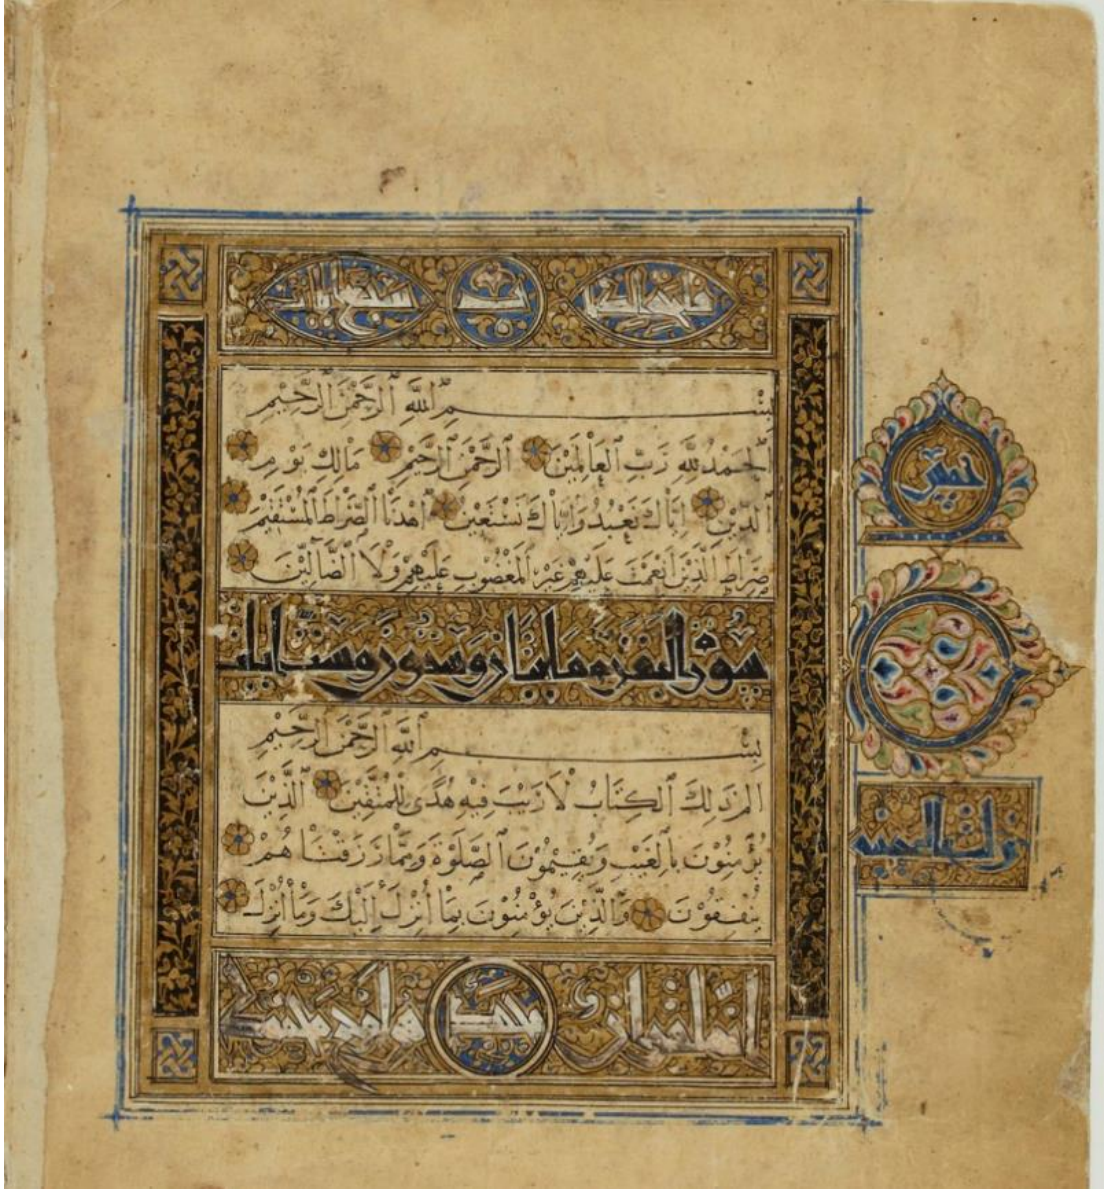 فاتحة الكتاب سبع ايات
بِسْمِ ٱللَّهِ ٱلرَّحْمٰنِ ٱلرَّحِيْمِ
اَلْحَمْدُ لِلَّهِ رَبِّ ٱلْعَالَمِيْنَ ٱلرَّحْمٰنِ ٱلرَّحِيْمِ مَالِكِ يَوْمِ
ٱلدِّيْنِ اِيَّاكَ نَعْبُدُ وَاِيَّاكَ نَسْتَعِيْنُ اِهْدِنَا ٱلصِّرَاطَ ٱلْمُسْتَقِيْمَ
صِرَاطَ ٱلَّذِيْنَ اَنْعَمْتَ عَلَيْهِمْ غَيْرِ ٱلْمَغْضُوبِ عَلَيْهِمْ وَلَا ٱلضَّالِّيْنَ
سورة البقرة مايتان وست ايات
بِسْمِ ٱللَّهِ ٱلرَّحْمٰنِ ٱلرَّحِيْمِ
الم ذَلِكَ ٱلْكِتَابُ لَا رَيْبَ فِيْهِ هُدًى لِلْمُتَّقِيْنَ ٱلَّذِيْنَ
يُؤْمِنُوْنَ بِالْغَيْبِ وَيُقِيْمُوْنَ ٱلصَّلٰوةَ وَمِمَّا رَزَقْنَاهُمْ
يُنْفِقُوْنَ وَٱلَّذِيْنَ يُؤْمِنُوْنَ بِمَا اُنْزِلَ اِلَيْكَ وَمَا اُنْزِلَ
نزلت بالمدينة